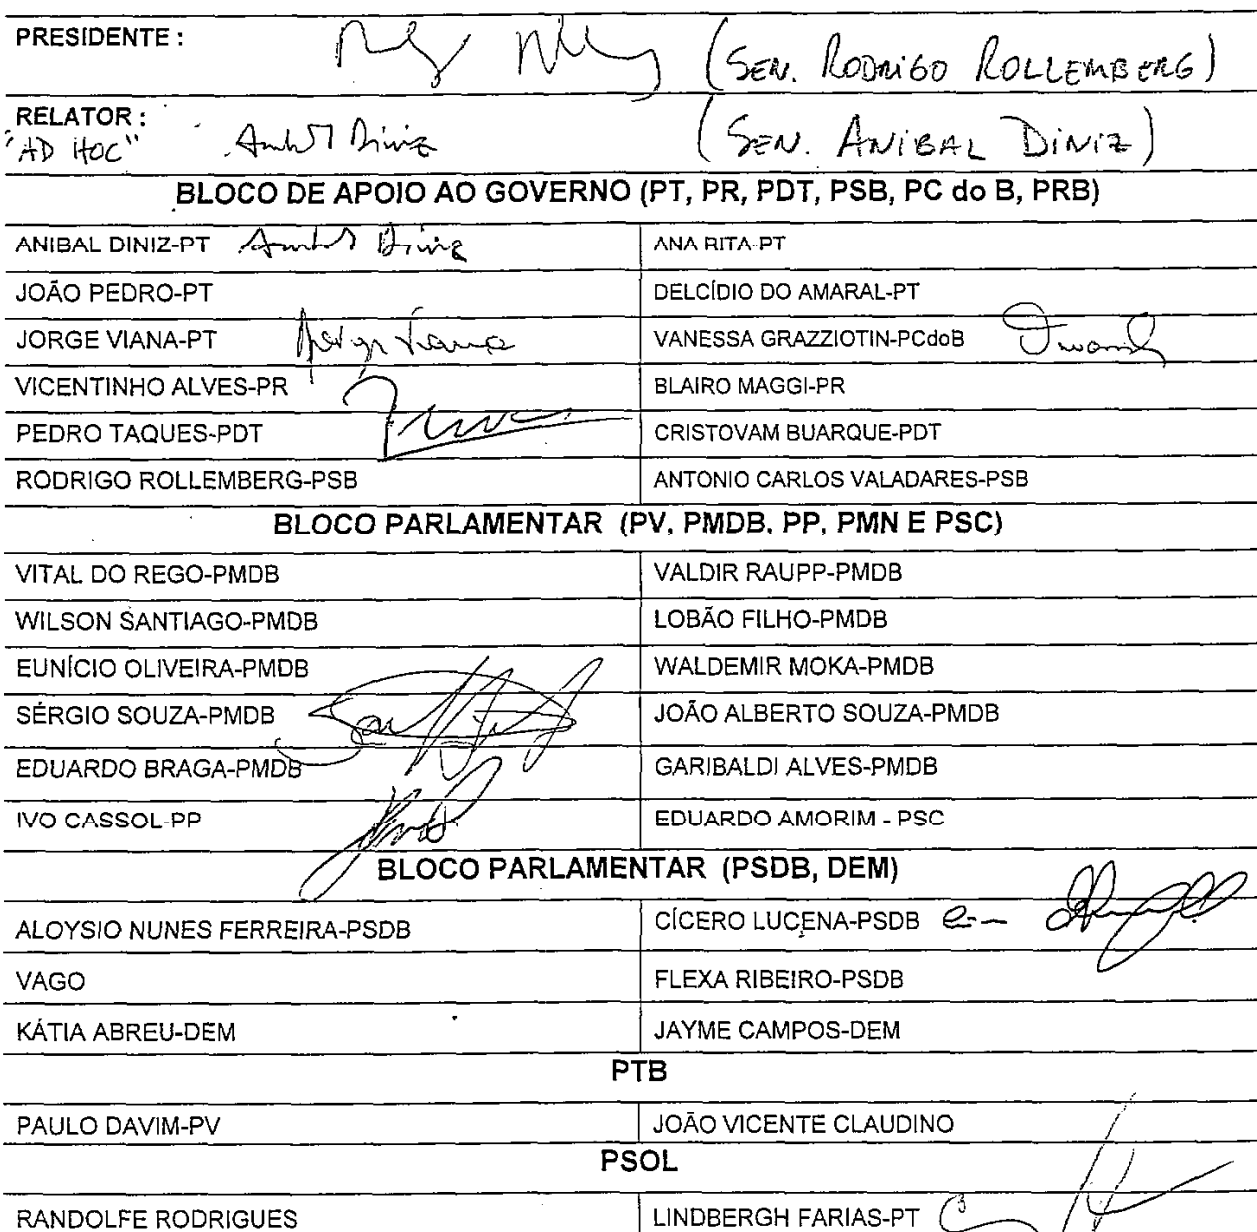 PRESIDENTE : (SEN. RODRIGO ROLLEMBERG)
RELATOR :
"AD HOC" Anibal Diniz (SEN. ANIBAL DINIZ)
BLOCO DE APOIO AO GOVERNO (PT, PR, PDT, PSB, PC do B, PRB)
ANIBAL DINIZ-PT Anibal Diniz ANA RITA-PT
JOÃO PEDRO-PT DELCÍDIO DO AMARAL-PT
JORGE VIANA-PT Jorge Viana VANESSA GRAZZIOTIN-PCdoB
VICENTINHO ALVES-PR BLAIRO MAGGI-PR
PEDRO TAQUES-PDT CRISTOVAM BUARQUE-PDT
RODRIGO ROLLEMBERG-PSB ANTONIO CARLOS VALADARES-PSB
BLOCO PARLAMENTAR (PV, PMDB, PP, PMN E PSC)
VITAL DO REGO-PMDB VALDIR RAUPP-PMDB
WILSON SANTIAGO-PMDB LOBÃO FILHO-PMDB
EUNÍCIO OLIVEIRA-PMDB WALDEMIR MOKA-PMDB
SÉRGIO SOUZA-PMDB JOÃO ALBERTO SOUZA-PMDB
EDUARDO BRAGA-PMDB GARIBALDI ALVES-PMDB
IVO CASSOL-PP EDUARDO AMORIM - PSC
BLOCO PARLAMENTAR (PSDB, DEM)
ALOYSIO NUNES FERREIRA-PSDB CÍCERO LUCENA-PSDB
VAGO FLEXA RIBEIRO-PSDB
KÁTIA ABREU-DEM JAYME CAMPOS-DEM
PTB
PAULO DAVIM-PV JOÃO VICENTE CLAUDINO
PSOL
RANDOLFE RODRIGUES LINDBERGH FARIAS-PT